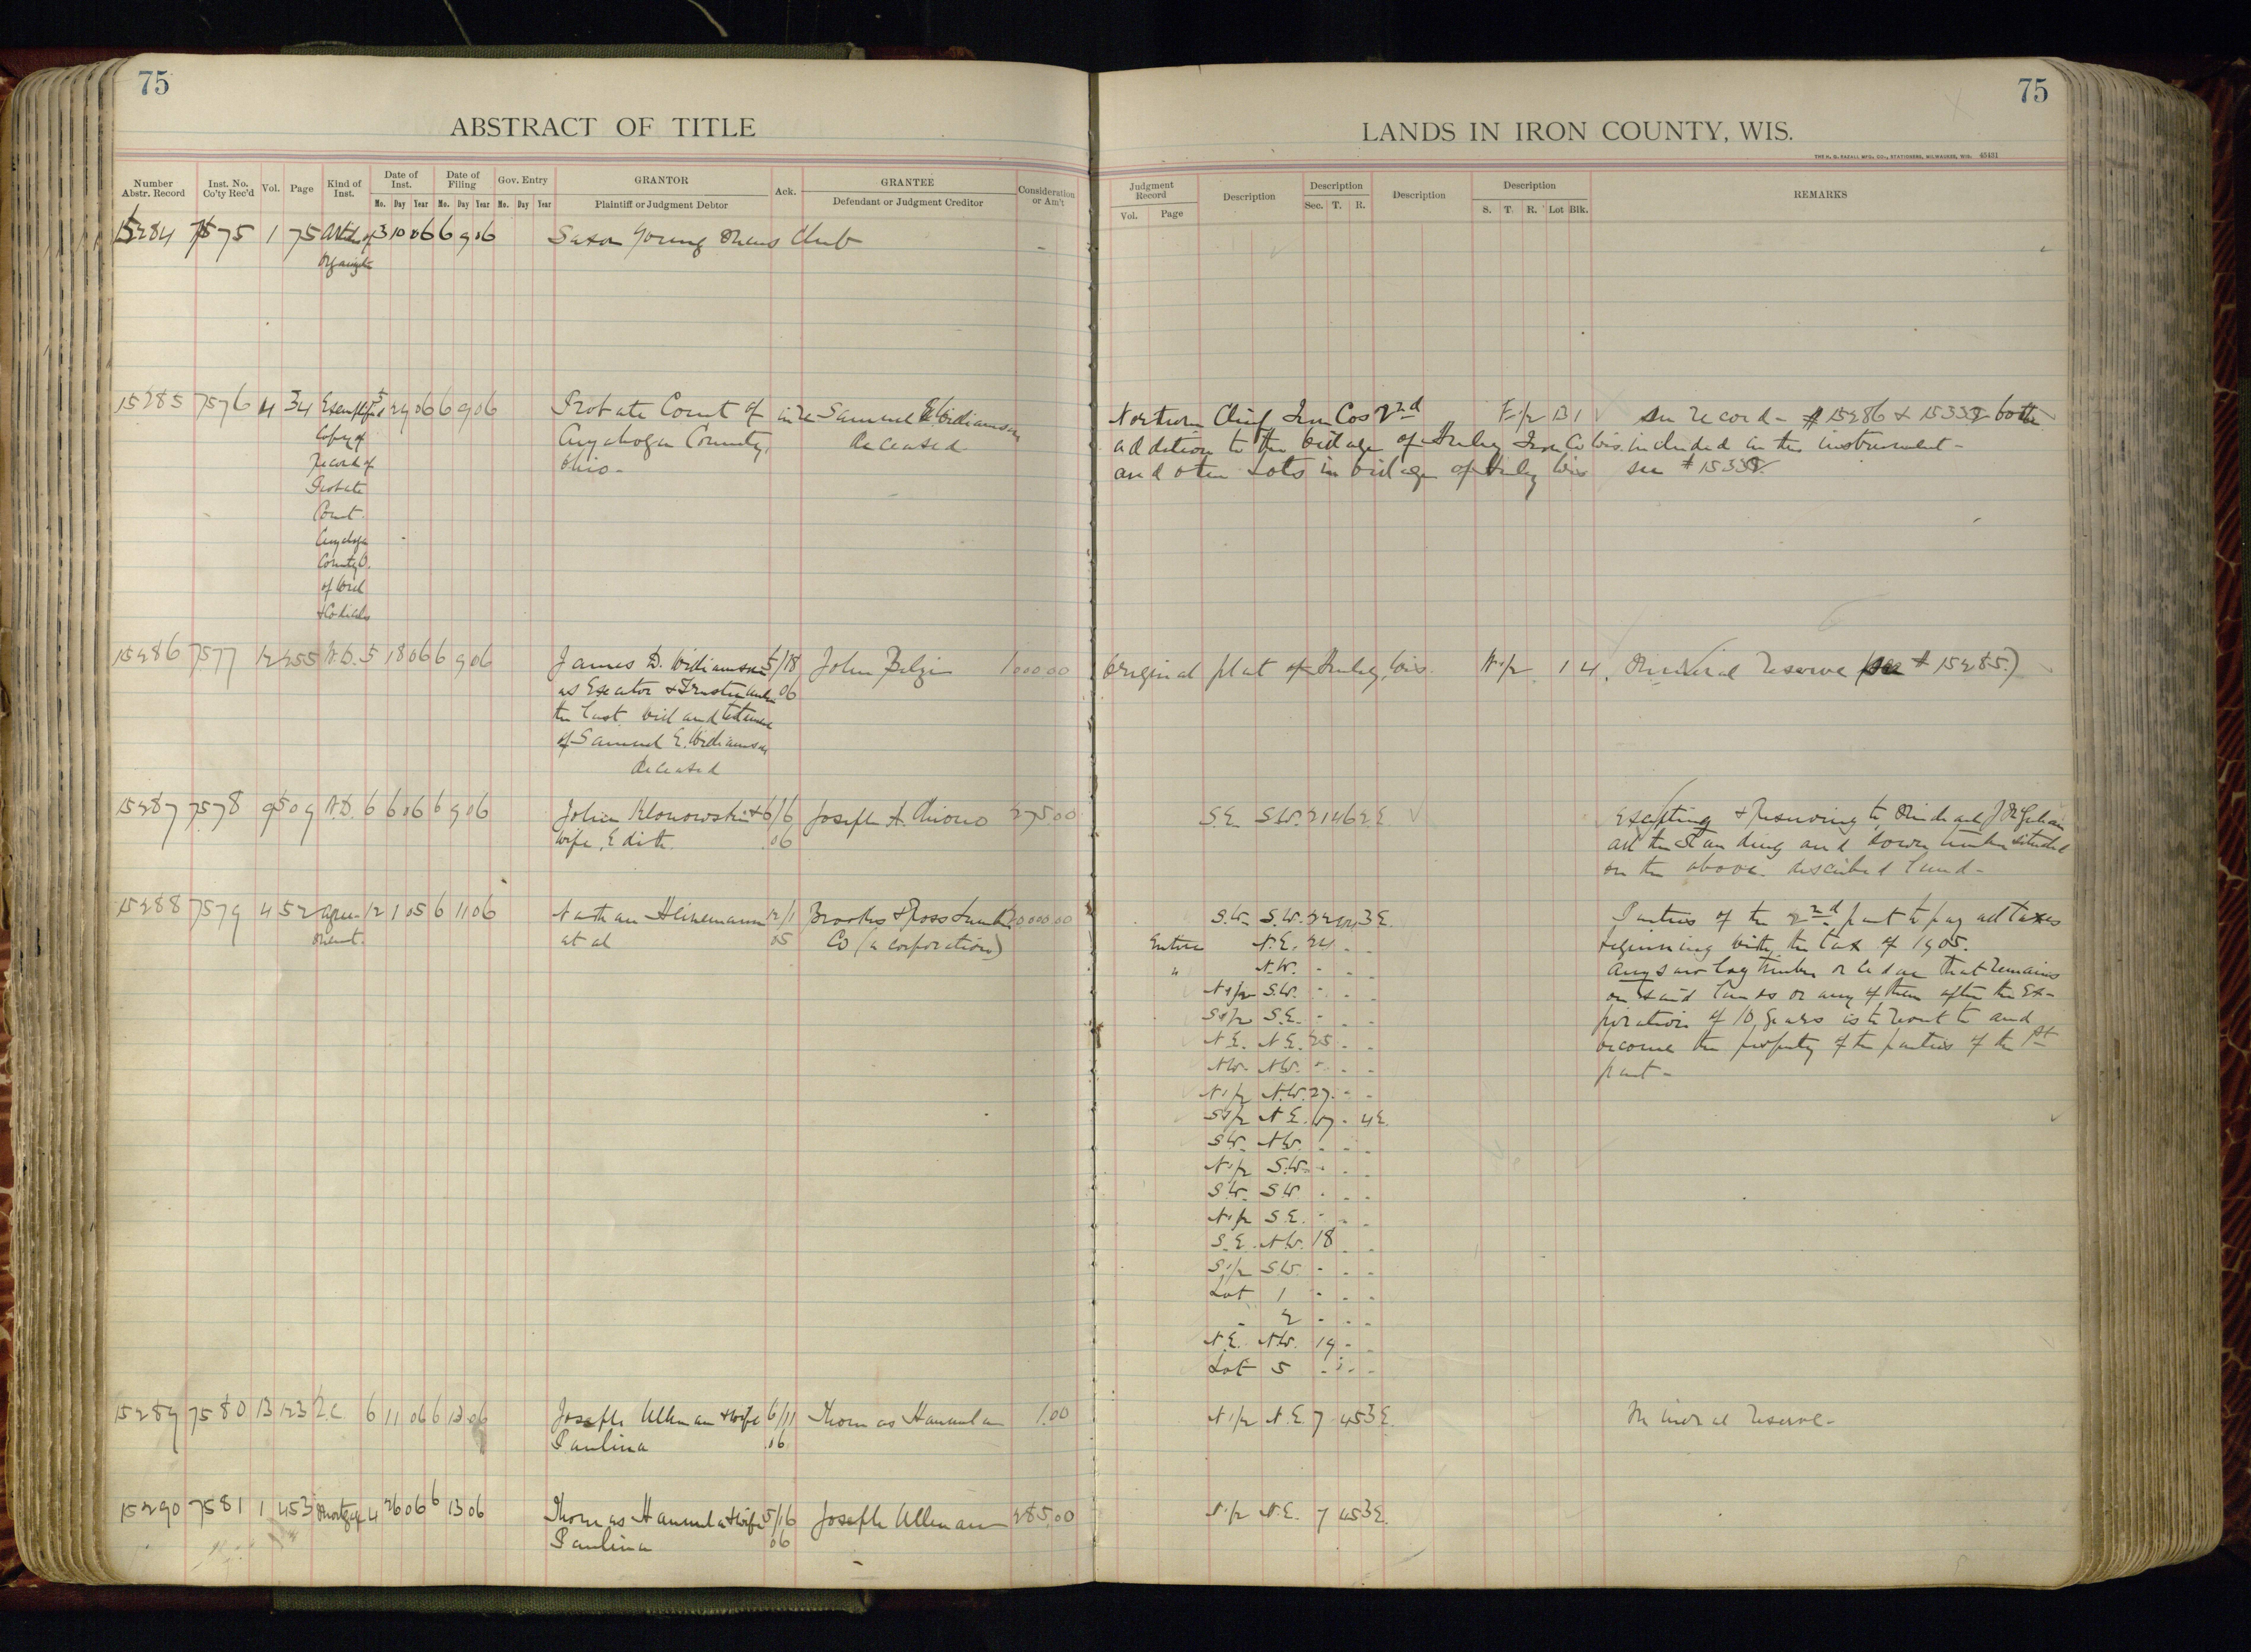 75
ABSTRACT OF TITLE
Number Abstr. Record Inst. No. Co'ty Rec'd Vol. Page Kind of Inst. Date of Inst. Date of Filing Gov. Entry GRANTOR Ack. GRANTEE Consideration or Am't
Mo. Day Year Mo. Day Year Mo. Day Year Plaintiff or Judgment Debtor Defendant or Judgment Creditor
15284 7575 1 75 Articles of 3 10 06 6 9 06 Saxon Young Mens Club -
Organizt
15285 7576 4 34 Exemplified 5 29 06 6 9 06 Probate Court of in re Samuel E. Williamson
Copy of Cuyahoga County, deceased
record of Ohio -
Probate
Court
Cuyahoga
County O.
of Will
+ Codicils
15286 7577 12 255 W.D. 5 18 06 6 9 06 James D. Williamson 5/18 John 1000.00
as Executor + Trustee under 06
the last will and testament
of Samuel E. Williamson
deceased
15287 7578 9 509 W.D. 6 6 06 6 9 06 Julian Klonowski + 6/6 Joseph A. 275.00
wife, Edith. 06
15288 7579 4 52 Agree- 12 1 05 6 11 06 Nathan Heinemann 12/1 Brooks + Ross Lumber 20000.00
ment. et al 05 Co (a corporation)
15289 7580 13 123 2.C. 6 11 06 6 13 06 Joseph Ullman + wife 6/11 Thomas Hannula 1.00
Paulina 06
15290 7581 1 453 Mortgage 4 26 06 6 13 06 Thomas Hannula + wife 5/16 Joseph Ullman 285.00
Paulina 06
75
LANDS IN IRON COUNTY, WIS.
THE H. G. RAZALL MFG. CO., STATIONERS, MILWAUKEE, WIS. 45431
Judgment Record Description Description Description Description REMARKS
Vol. Page Sec. T. R. S. T. R. Lot Blk.
Northern Chief Iron Cos 2nd 13 1 See record - # 15286 + 15338 both
addition to the village of Hurley Iron Co Wis. included in this instrument -
and other Lots in village of Hurley Wis see # 15338
Original plat of Hurley, Wis. W1/2 1 4. Mineral reserve (see # 15285.)
S.E. S.W. 21 46 2E. Excepting + Reserving to Michael J.
all the standing and down timber situated
on the above described land -
S.W. S.W. 22 42 3E. Parties of the 2nd part to pay all taxes
Entire N.E. 24 - - beginning with the tax of 1905.
" N.W. - - - Any saw log timber or cedar that remains
N1/2 S.W. - - - on said lands or any of them after the Ex-
S1/2 S.E. - - - piration of 10 years is to revert to and
N.E. N.E. 25 - - become the property of the parties of the 1st
N.W. N.W. - - - part -
N1/2 N.W. 27 - -
S1/2 N.E. 17 - 4E.
S.W. N.W. - - -
N1/2 S.W. - - -
S.W. S.W. - - -
N1/2 S.E. - - -
S.E. N.W. 18 - -
S1/2 S.W. - - -
Lot 1 - - -
- 2 - - -
N.E. N.W. 19 - -
Lot 5 - - -
N1/2 N.E. 7 45 3E. Mineral reserve -
N1/2 N.E. 7 45 3E.